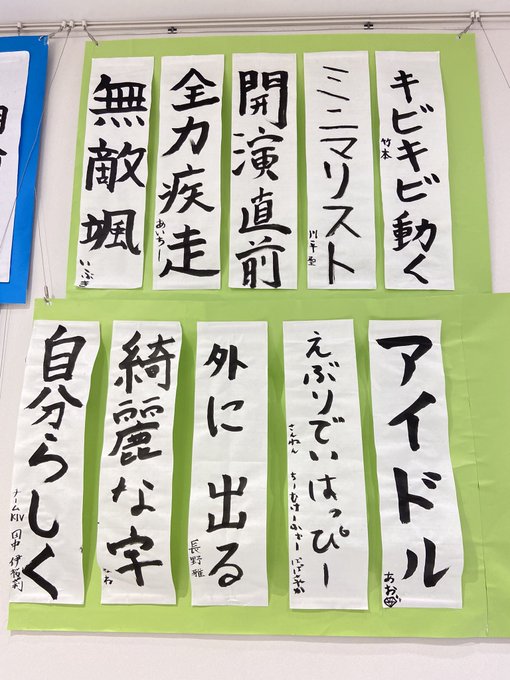 キビキビ動く
竹本
ミニマリスト
開演直前
全力疾走
あいちー
無敵颯
いぶき
アイドル
あお
えぶりでいはっぴー
さんねん
外に出る
長野雅
綺麗な字
自分らしく
チームKIV
田中 伊桜莉